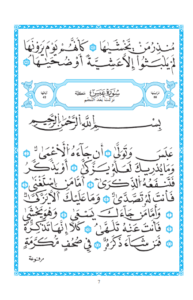 مُنذِرُ مَن يَخْشَىٰهَا كَأَنَّهُمْ يَوْمَ يَرَوْنَهَا
لَمْ يَلْبَثُوٓا۟ إِلَّا عَشِيَّةً أَوْ ضُحَىٰهَا
سُورَةُ عَبَسَ
نزلت بعد النجم
بِسْمِ ٱللَّهِ ٱلرَّحْمَٰنِ ٱلرَّحِيمِ
عَبَسَ وَتَوَلَّىٰٓ أَن جَآءَهُ ٱلْأَعْمَىٰ
وَمَا يُدْرِيكَ لَعَلَّهُۥ يَزَّكَّىٰٓ أَوْ يَذَّكَّرُ
فَتَنفَعَهُ ٱلذِّكْرَىٰٓ أَمَّا مَنِ ٱسْتَغْنَىٰ
فَأَنتَ لَهُۥ تَصَدَّىٰ وَمَا عَلَيْكَ أَلَّا يَزَّكَّىٰ
وَأَمَّا مَن جَآءَكَ يَسْعَىٰ وَهُوَ يَخْشَىٰ
فَأَنتَ عَنْهُ تَلَهَّىٰ كَلَّآ إِنَّهَا تَذْكِرَةٌ
فَمَن شَآءَ ذَكَرَهُۥ فِى صُحُفٍ مُّكَرَّمَةٍ
مرفوعة